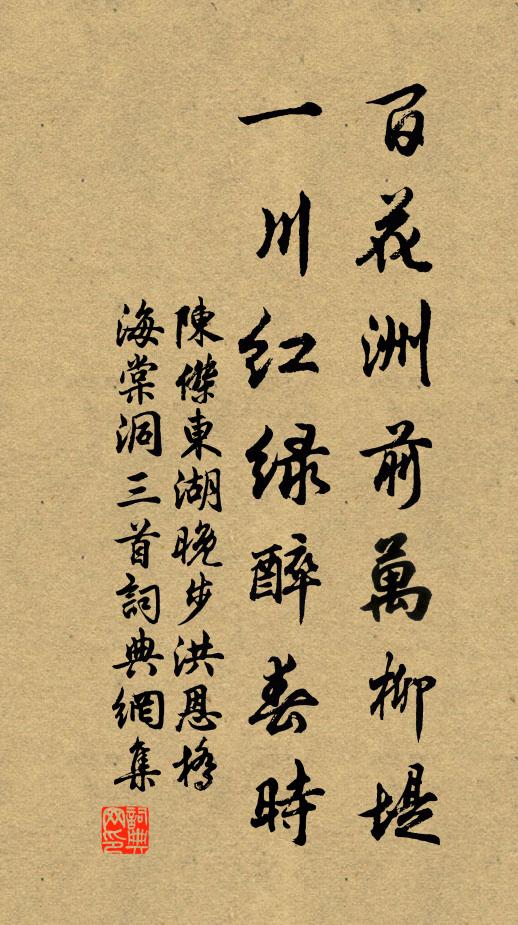 百花洲前萬柳堤
一川红緑醉春時
陳傑東湖晚步洪恩橋
海棠洞三首詞典網集
詞典
网印